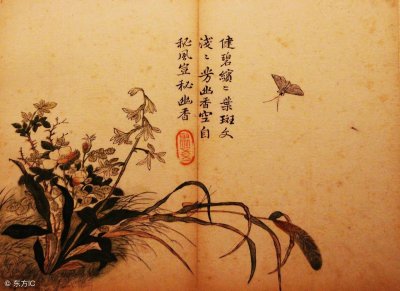 健碧繽〻葉斑文
淺〻芳幽香空自
秘風豈秘幽香
© 东方IC